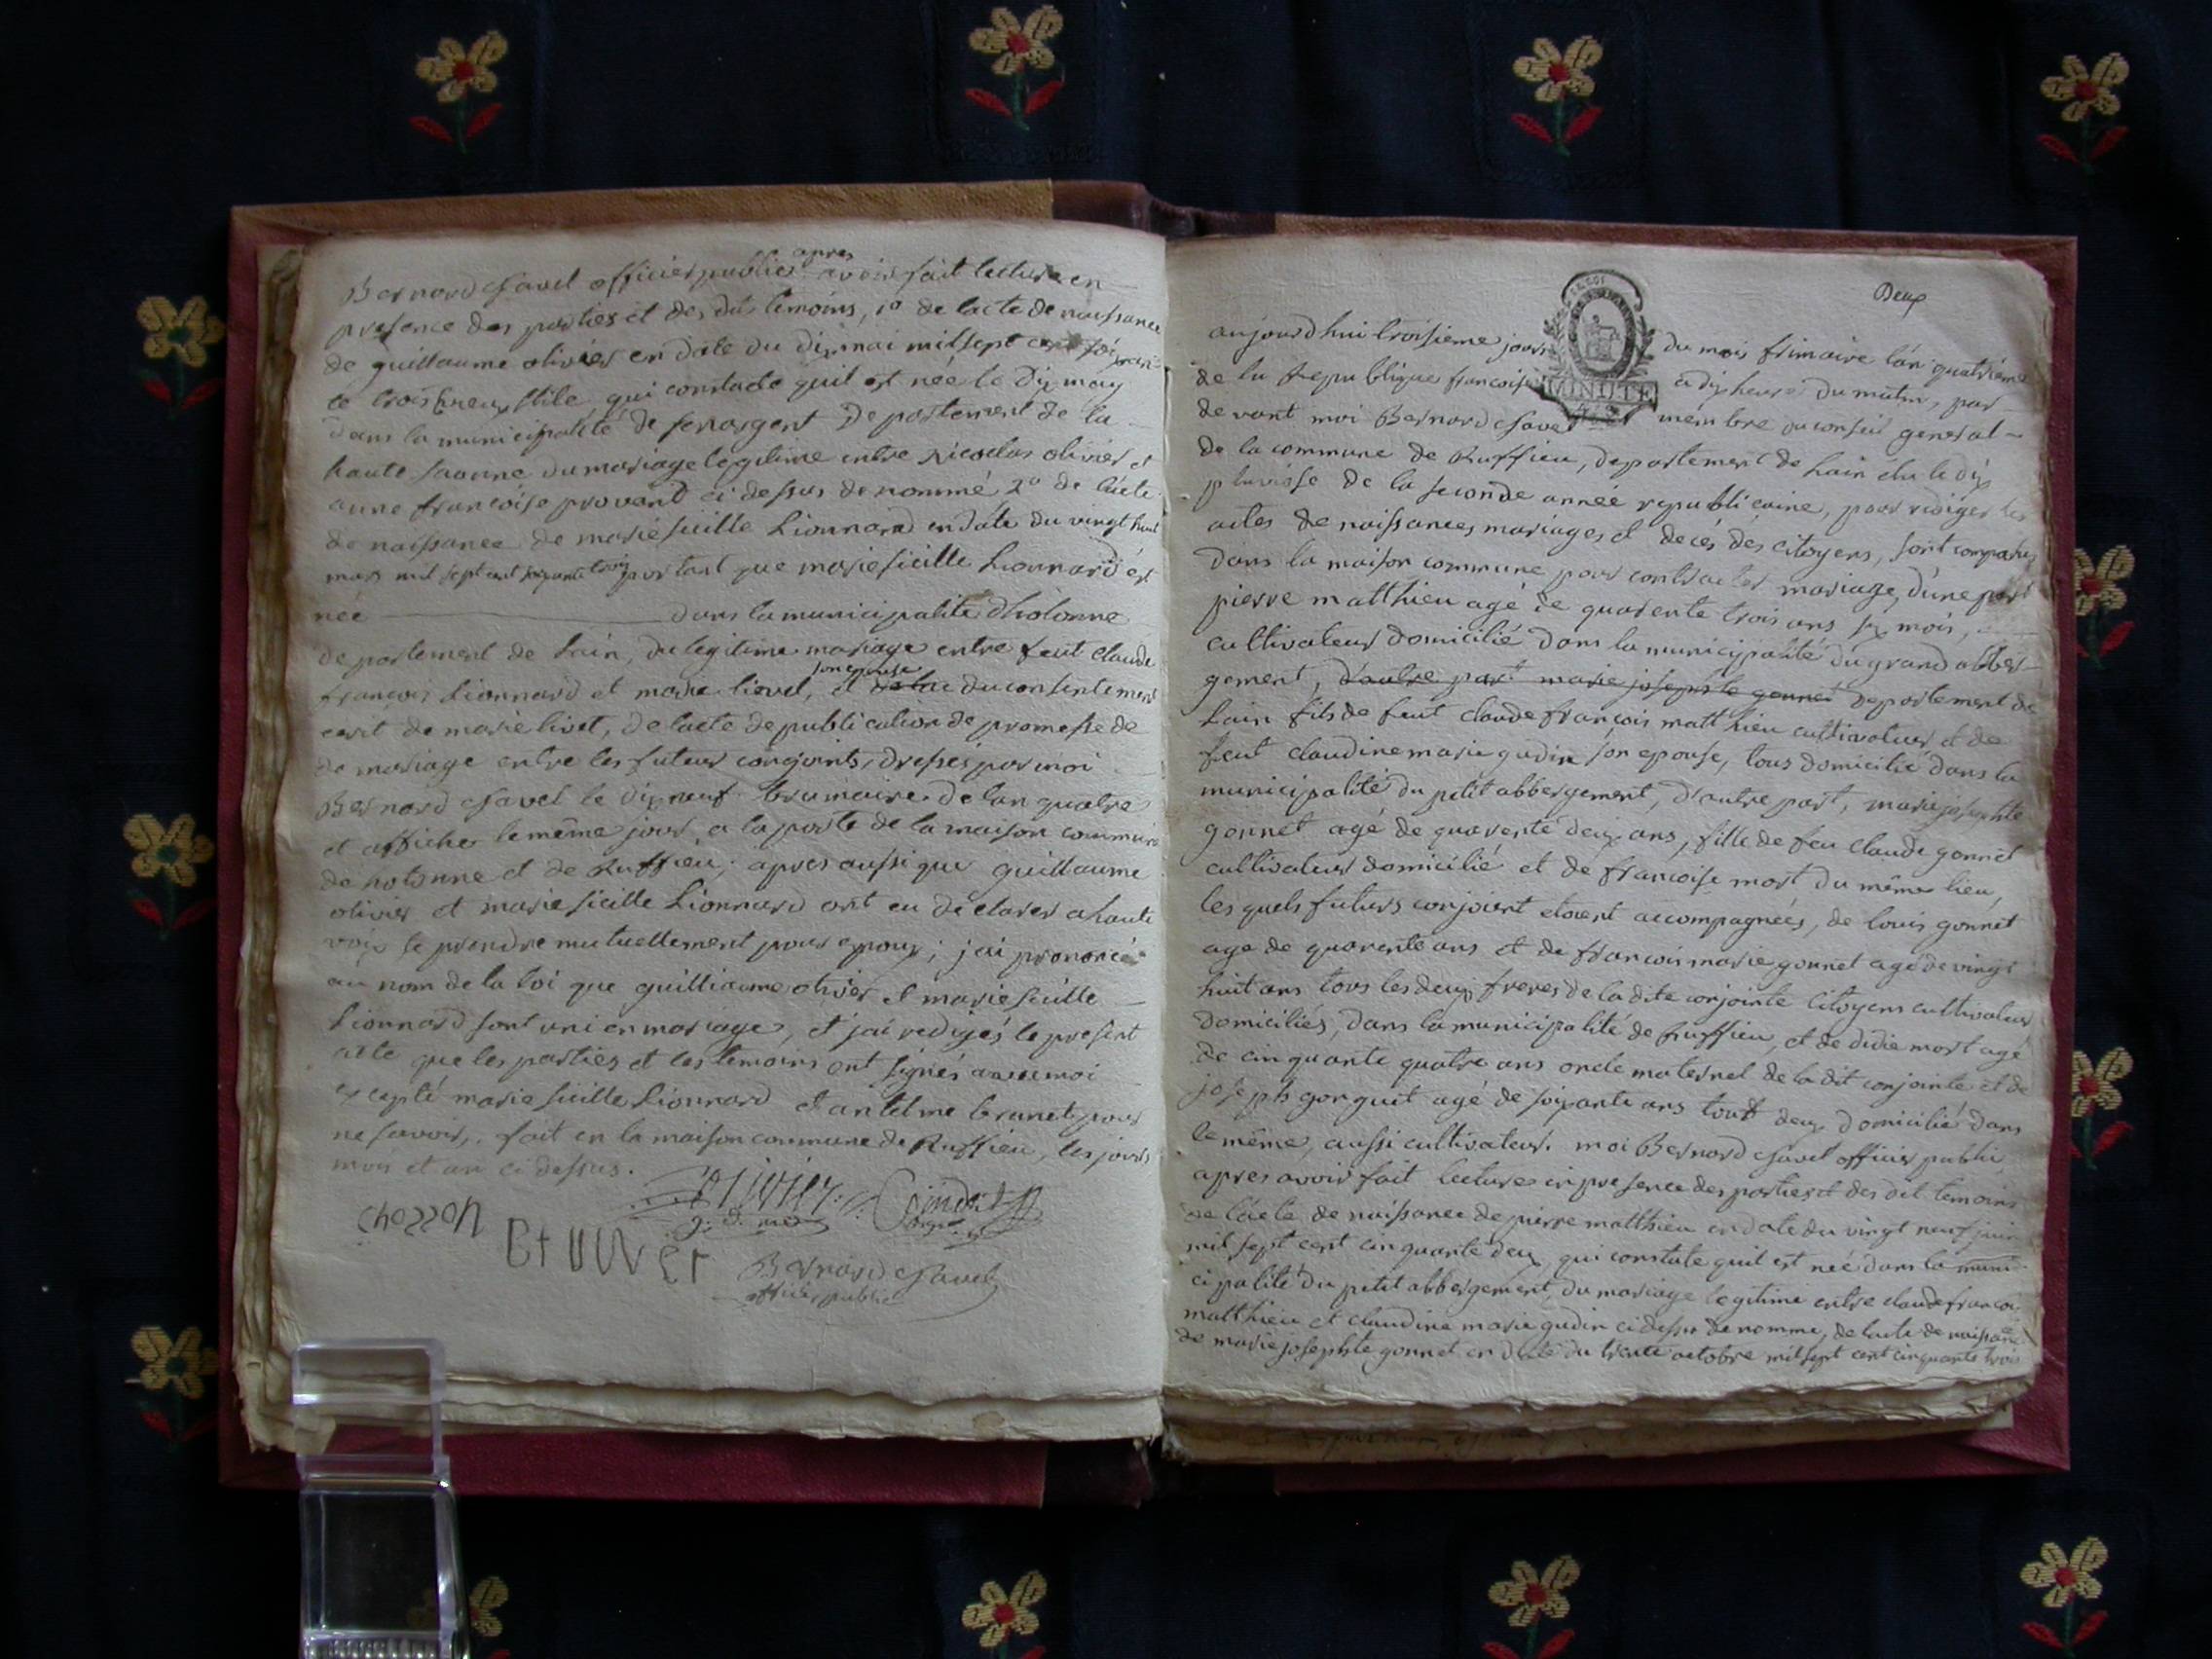 Bernord Savel officier public apres avoir fait lecture en
presence des parties et des dits temoins, 1º de lacte de naissance
de guillaume olivier en date du dix mai mil sept cent
le trois vieux stile qui constate quil est née le dix may
dans la municipalité de senargent departement de la
haute saonne, du mariage legitime entre nicolas olivier et
anne francoise provant ci dessus denommé 2º de lacte
de naissance de marie sicille Lionnard en date du vingt huit
mars mil sept cent soixante trois portant que marie sicille Lionnard est
née dans la municipalité dhotonne
departement de lain, du legitime mariage entre feut claude
françois Lionnard et marie livet, son epouse et du consentement
ecrit de marie livet, de lacte de publication de promesse de
de mariage entre les futurs conjoints, dressés par moi
Bernord Savel le dix neuf brumaire de lan quatre
et afficher le même jour a la porte de la maison commune
de hotonne et de Ruffieu; apres aussi que guillaume
olivier et marie sicille Lionnard ont eu declarer a haute
voix se prendre mutuellement pour epoux; j'ai prononcé
au nom de la loi que guilliaume olivier et marie sicille
Lionnard sont uni en mariage, et j'ai redigés le present
acte que les parties et les temoins ont signés avec moi
excepté marie sicille Lionnard et antelme brunet pour
ne savoir, fait en la maison commune de Ruffieu, les jours
mois et an ci dessus.
olivier
chozzon
Bruwer
Bernord Savel
officier public
Deux
aujourdhui troisieme jour du mois frimaire lan quatriéme
de la Republique francoise a dix heures du matin, par
MINUTE
devant moi Bernord Savel membre du conseil general
de la commune de Ruffieu, departement de lain elu le dix
pluviose de la seconde année republicaine, pour rediger les
actes de naissances mariages et decés des citoyens, sont comparus
dans la maison commune pour contracter mariage, d'une part
pierre matthieu agé de quarente trois ans six mois,
cultivateur domicilié dans la municipalité du grand abber
gement, d'autre part marie josephte gonnet departement de
lain fils de feut claude françois matthieu cultivateur et de
feut claudine marie gudin son epouse, tous domicilié dans la
municipalité du petit abbergement, d'autre part, marie josephte
gonnet agé de quarente deux ans, fille de feu claude gonnet
cultivateur domicilié et de francoise mort du même lieu,
les quels futurs conjoint etoient accompagnées, de louis gonnet
age de quarente ans et de francois marie gonnet agé de vingt
huit ans tous les deux freres de la dite conjointe citoyens cultivateur
domiciliés, dans la municipalité de Ruffieu, et de didie mort agé
de cinquante quatre ans oncle maternel de la dit conjointe et de
joseph gonguet agé de soixante ans tout deux domicilié dans
le même, aussi cultivateur. moi Bernord Savel officier public
apres avoir fait lecture en presence des parties et des dit temoins
de lacte de naissance de pierre matthieu en date du vingt neuf juin
mil sept cent cinquante deux, qui constate quil est née dans la muni-
cipalité du petit abbergement, du mariage legitime entre claude francoi
matthieu et claudine marie gudin ci dessus denomme, de lacte de naissance
de marie josephte gonnet en date du trente octobre mil sept cent cinquante trois